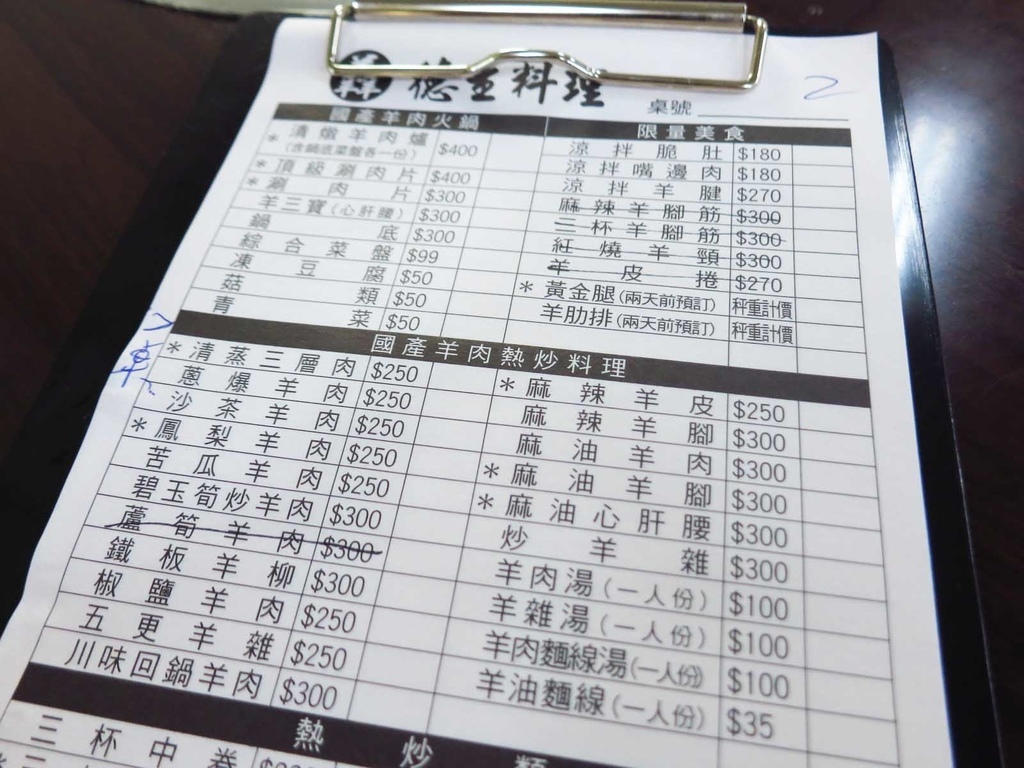 德王料理
桌號
2
國產羊肉火鍋
*清燉羊肉爐 $400
(含鍋底菜盤各一份)
*頂級涮肉片 $400
*涮肉片 $300
羊三寶(心肝腰) $300
鍋底 $300
綜合菜盤 $99
凍豆腐 $50
菇類 $50
青菜 $50
限量美食
涼拌脆肚 $180
涼拌嘴邊肉 $180
涼拌羊腱 $270
麻辣羊腳筋 $300
三杯羊腳筋 $300
紅燒羊頸 $300
羊皮捲 $270
*黃金腿(兩天前預訂) 秤重計價
羊肋排(兩天前預訂) 秤重計價
國產羊肉熱炒料理
*清蒸三層肉 $250
蔥爆羊肉 $250
沙茶羊肉 $250
*鳳梨羊肉 $250
苦瓜羊肉 $250
碧玉筍炒羊肉 $300
蘆筍羊肉 $300
鐵板羊柳 $300
椒鹽羊肉 $250
五更羊雜 $250
川味回鍋羊肉 $300
*麻辣羊皮 $250
麻辣羊腳 $300
麻油羊肉 $300
*麻油羊腳 $300
*麻油心肝腰 $300
炒羊雜 $300
羊肉湯(一人份) $100
羊雜湯(一人份) $100
羊肉麵線湯(一人份) $100
羊油麵線(一人份) $35
熱炒類
三杯中卷